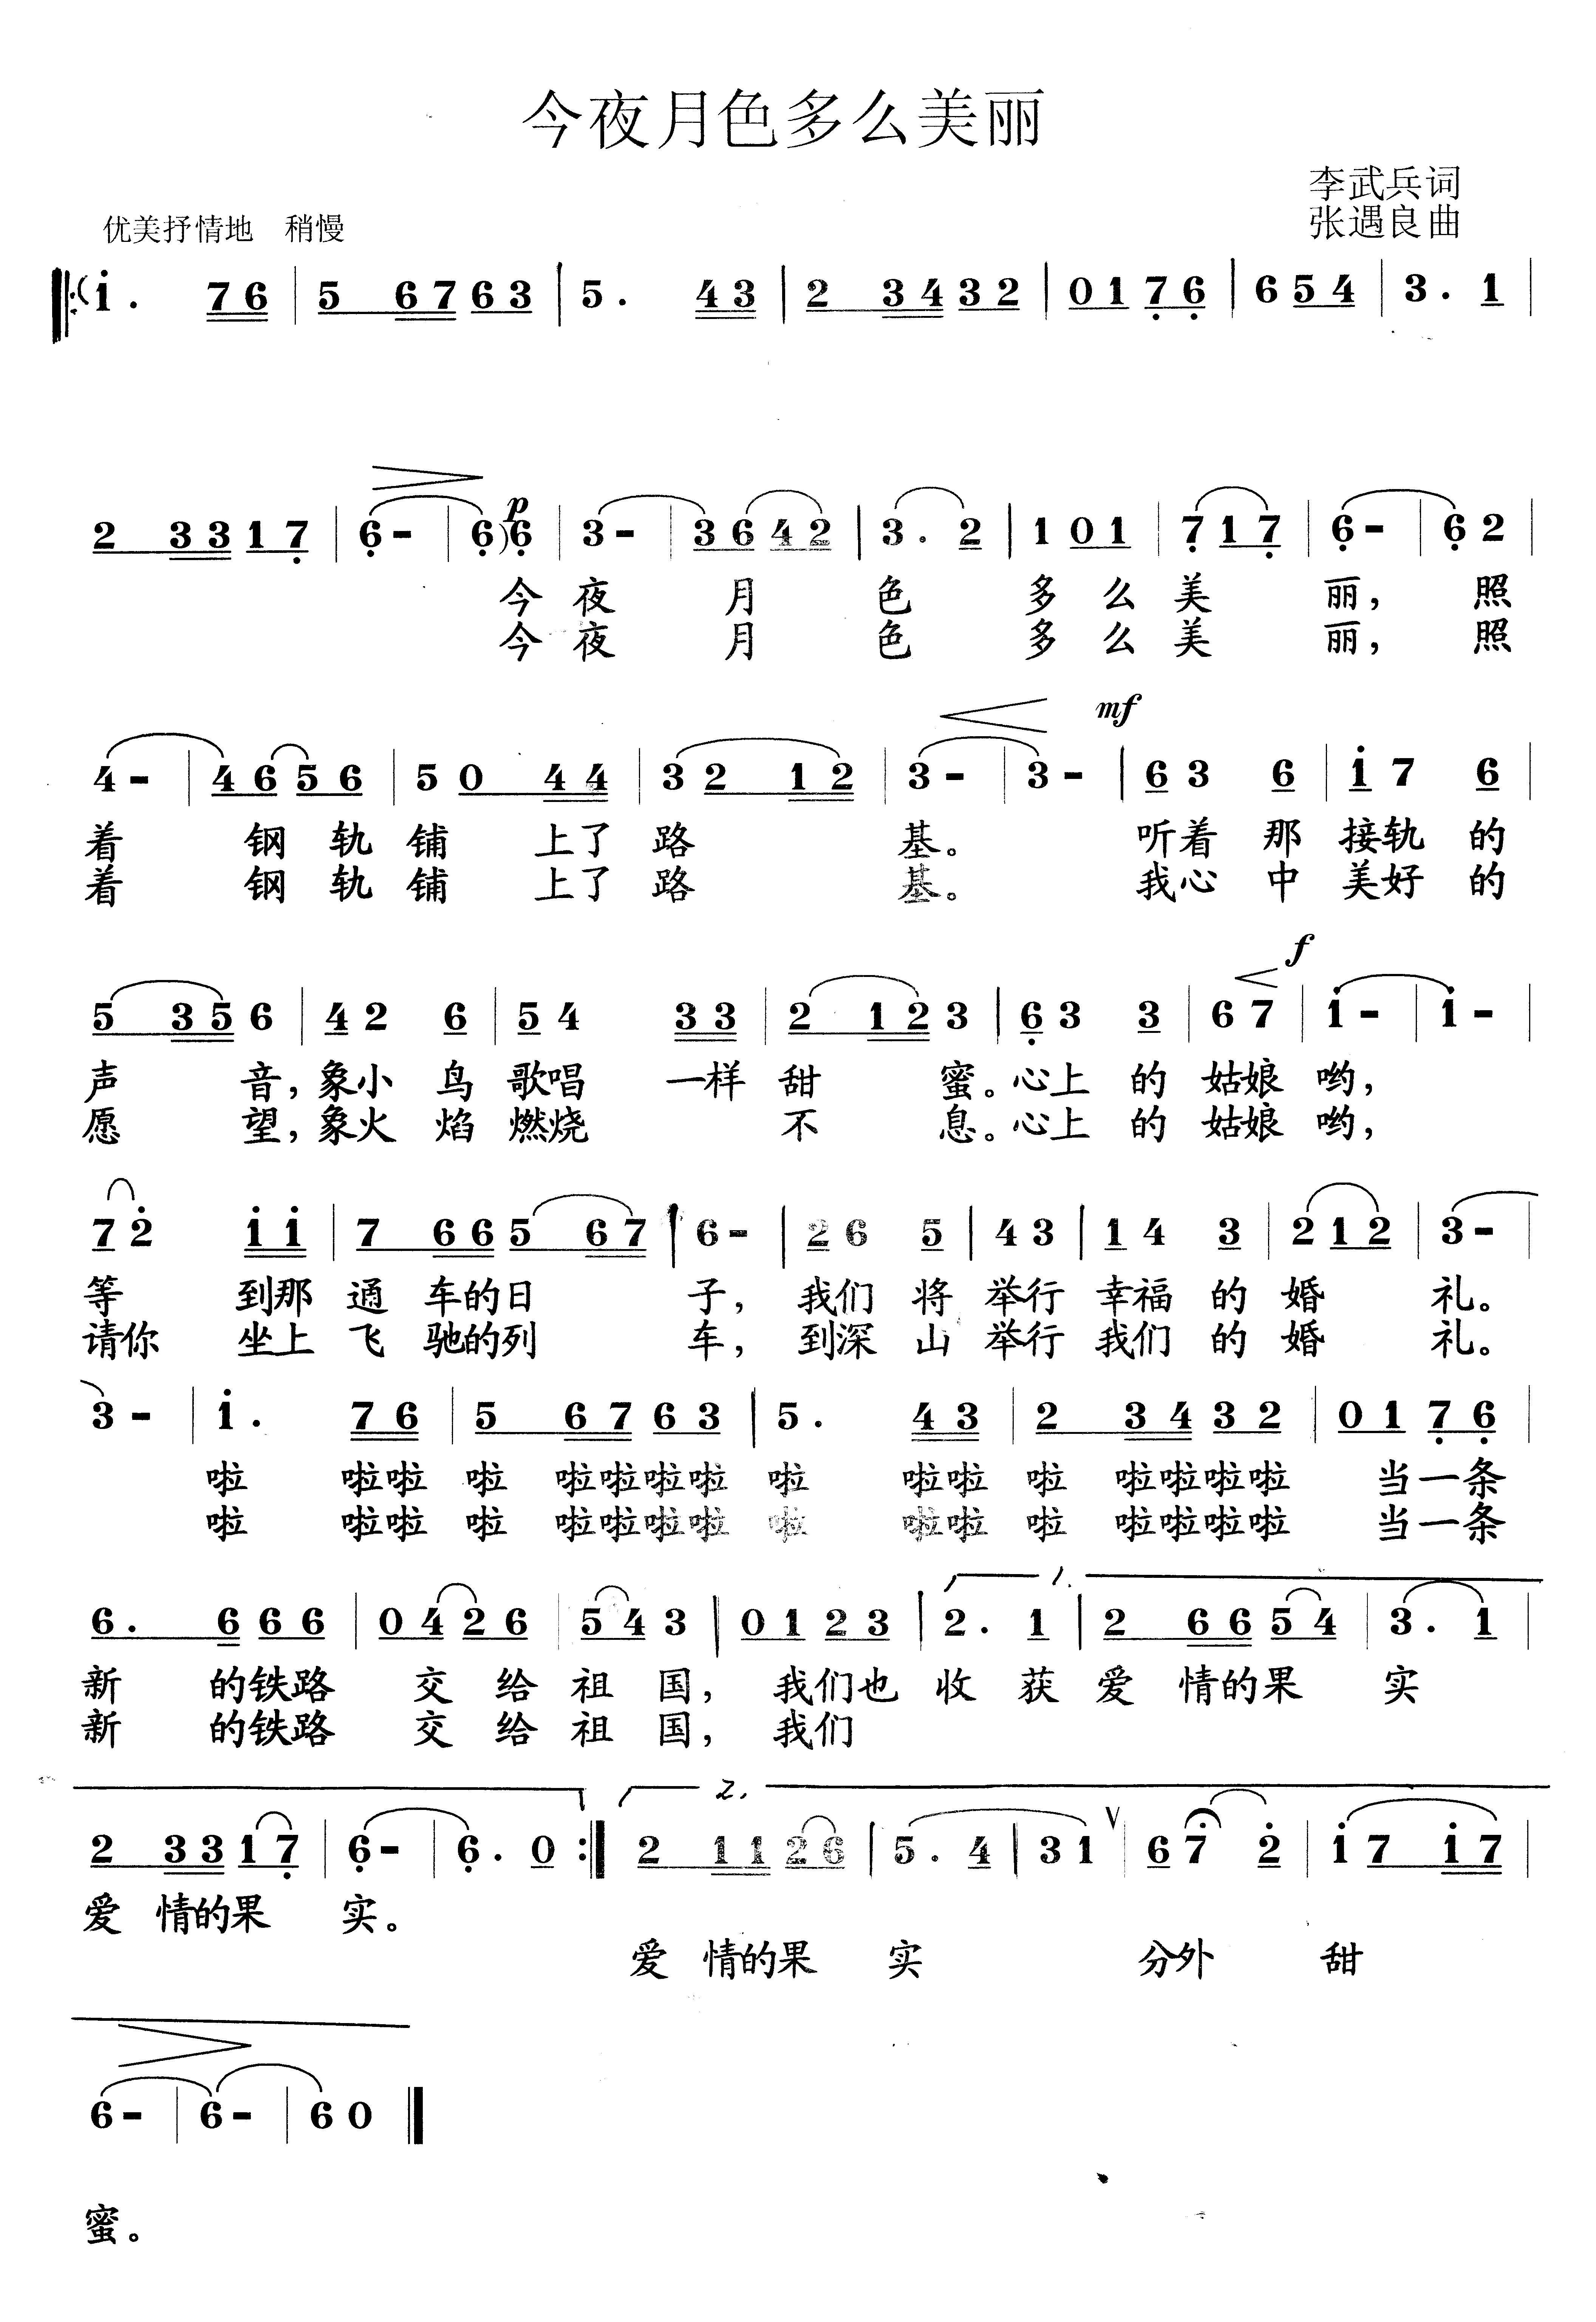 今夜月色多么美丽
李武兵词
优美抒情地 稍慢 张遇良曲
i. 76 | 5 6763 | 5. 43 | 2 3432 | 0176 | 654 | 3. 1 |
p
2 3317 | 6- | 6)6 | 3- | 3642 | 3. 2 | 101 | 717 | 6- | 62 |
今夜 月 色 多么美 丽, 照
今夜 月 色 多么美 丽, 照
mf
4- | 4656 | 50 44 | 32 12 | 3- | 3- | 63 6 | i7 6 |
着 钢轨铺 上了路 基。 听着那接轨的
着 钢轨铺 上了路 基。 我心中美好的
f
5 356 | 42 6 | 54 33 | 2 123 | 63 3 | 67 | i- | i- |
声 音,象小鸟歌唱 一样甜 蜜。心上的姑娘哟,
愿 望,象火焰燃烧 不 息。心上的姑娘哟,
72 ii | 7 665 67 | 6- | 26 5 | 43 | 14 3 | 212 | 3- |
等 到那通车的日 子,我们将举行幸福的婚 礼。
请你 坐上飞驰的列 车,到深山举行我们的婚 礼。
3- | i. 76 | 5 6763 | 5. 43 | 2 3432 | 0176 |
啦 啦啦 啦 啦啦啦啦 啦 啦啦 啦 啦啦啦啦 当一条
啦 啦啦 啦 啦啦啦啦 啦 啦啦 啦 啦啦啦啦 当一条
1.
6. 666 | 0426 | 543 | 0123 | 2. 1 | 2 6654 | 3. 1 |
新 的铁路 交给祖国, 我们也收 获爱 情的果 实
新 的铁路 交给祖国, 我们
2.
2 3317 | 6- | 6. 0 :| 2 1126 | 5. 4 | 31 V | 67 2 | i7 i7 |
爱 情的果 实。
爱 情的果 实 分外 甜
6- | 6- | 60 |
蜜。